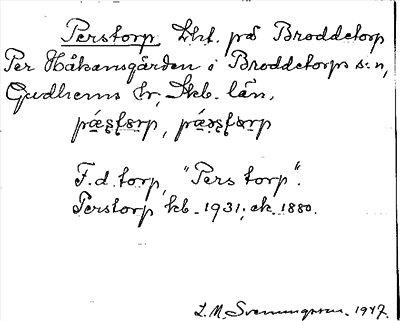 Perstorp lht. på Broddetorp
Per Håkansgården i Broddetorps s:n,
Gudhems hr, Skb. län.
F.d. torp, "Pers torp".
Perstorp kb. 1931; ek. 1880.
L. M. Svenungsson. 1947.